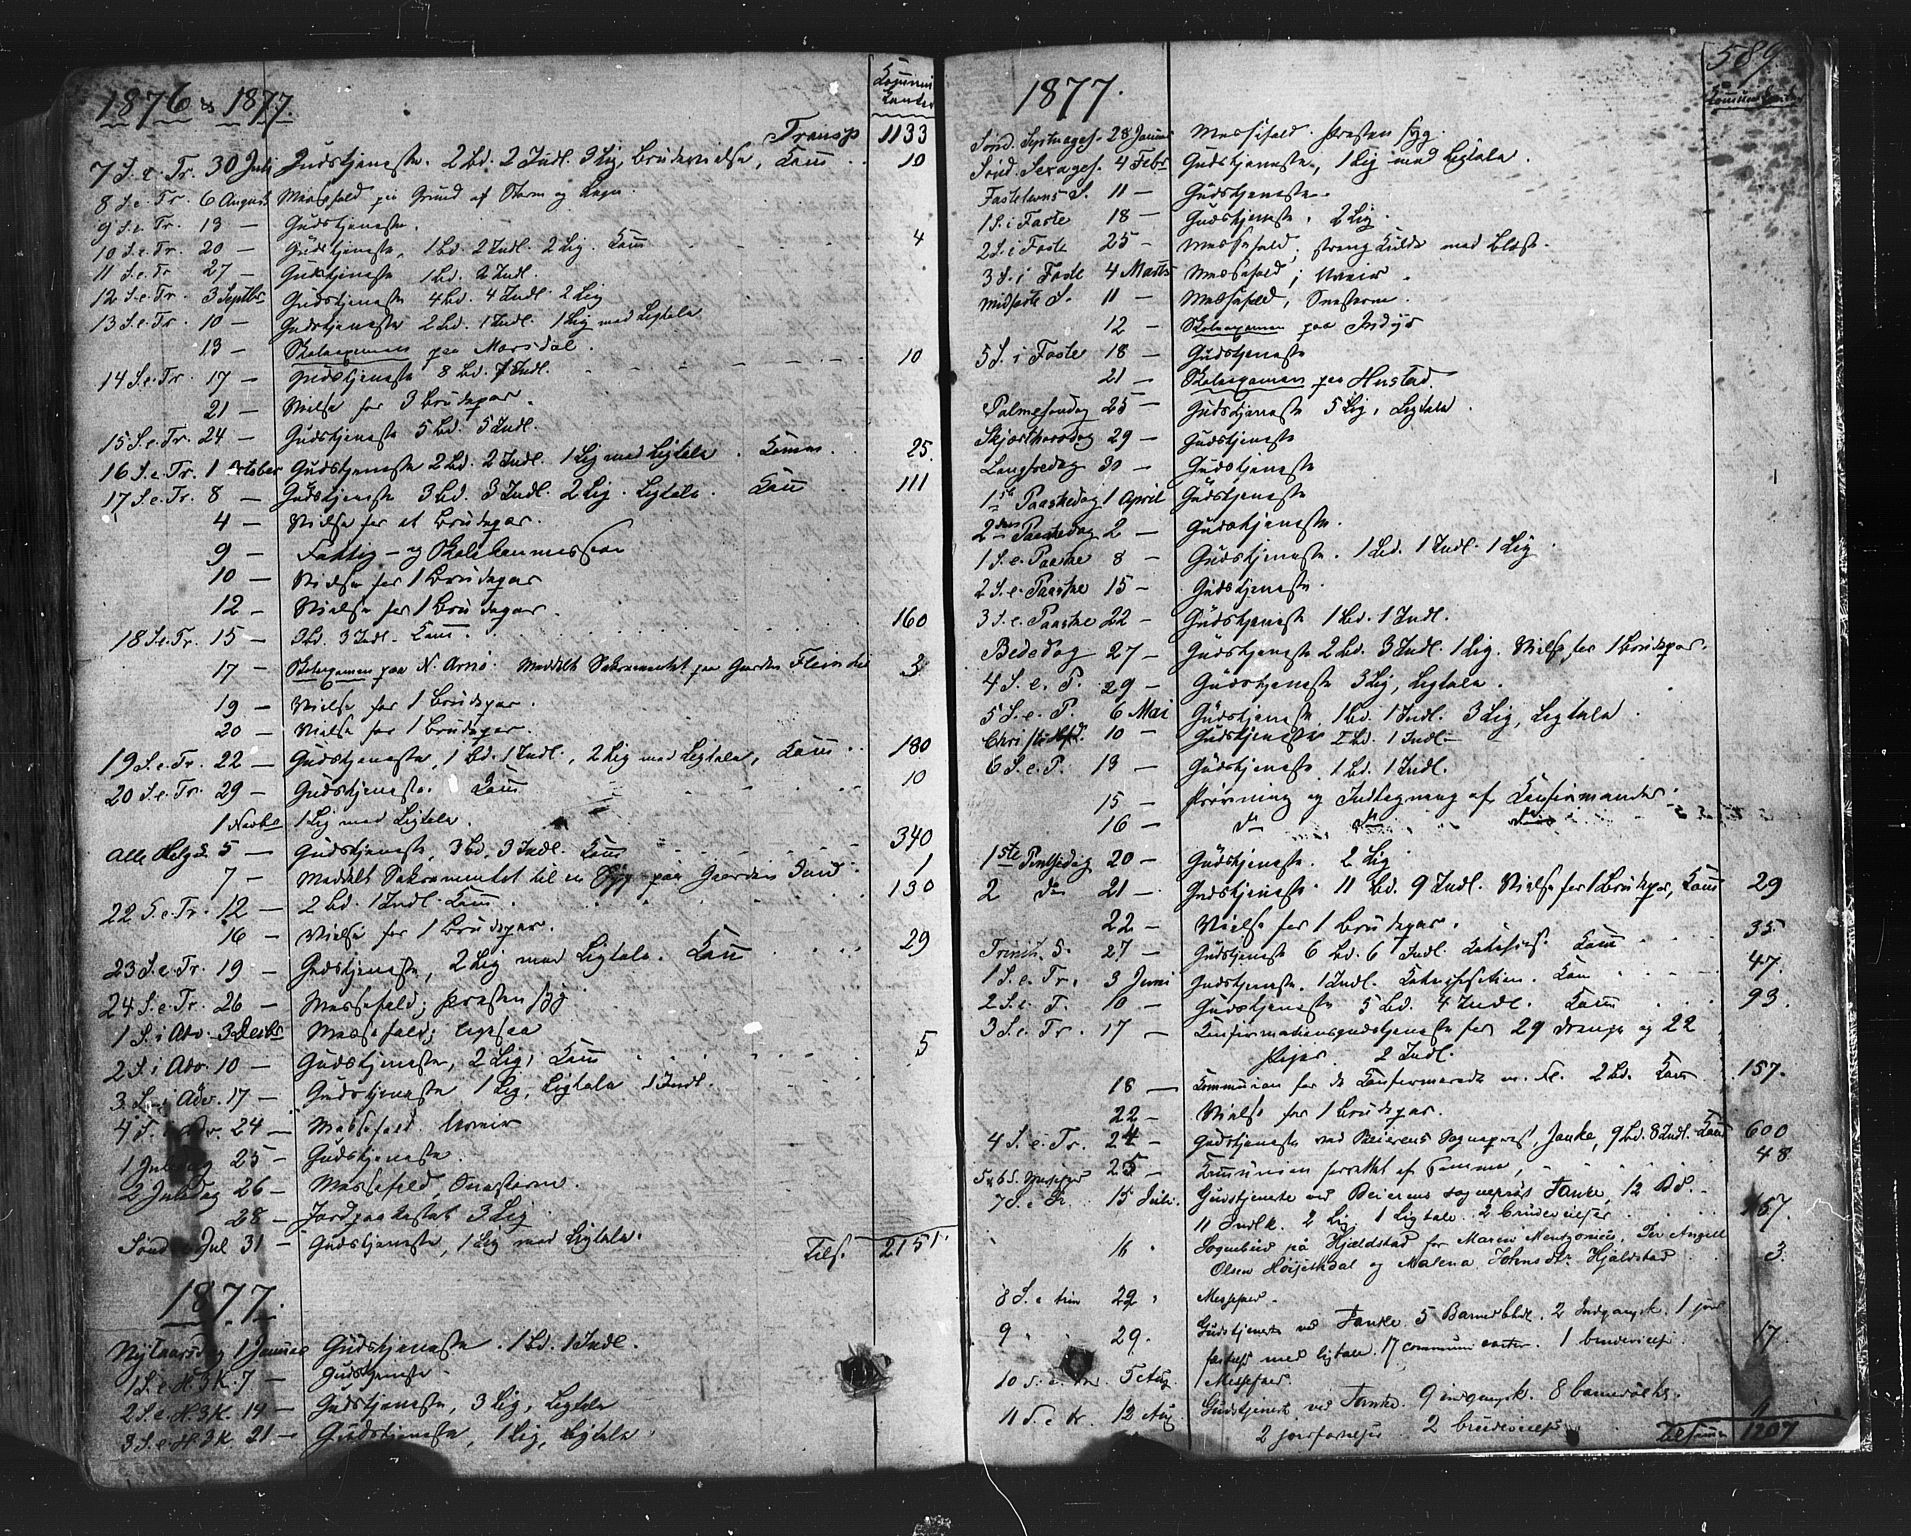 1876 & 1877.
Communi-
kanter
Transp 1133
7 S. e. Tr. 30 Juli Gudstjeneste. 2 Bd. 2 Indl. 3 Lig, Brudevielse, Com 10
8 S. e. Tr. 6 August Messefald paa Grund af Storm og
9 S. e. Tr. 13 — Gudstjeneste.
10 S. e. Tr. 20 — Gudstjeneste, 1 Bd. 2 Indl. 2 Lig. Com 4
11 S. e. Tr. 27 — Gudstjeneste 1 Bd. 2 Indl.
12 S. e. Tr. 3 Septbr. Gudstjeneste 4 Bd. 4 Indl. 2 Lig
13 S. e. Tr. 10 — Gudstjeneste 2 Bd. 1 Indl. 1 Lig med Ligtale
13 — Skoleexamen paa Morsdal.
14 S. e. Tr. 17 — Gudstjeneste 8 Bd. 7 Indl. 10
21 — Vielse for 3 Brudepar.
15 S. e. Tr. 24 — Gudstjeneste 5 Bd. 5 Indl.
16 S. e. Tr. 1 October Gudstjeneste 2 Bd. 2 Indl. 1 Lig med Ligtale. Comm. 25.
17 S. e. Tr. 8 — Gudstjeneste 3 Bd. 3 Indl. 2 Lig. Ligtale. Com 111
4 — Vielse for et Brudepar.
9 — Fattig- og Skolekommission
10 — Vielse for 1 Brudepar
12 — Vielse for 1 Brudepar.
18 S. e. Tr. 15 — 3 Bd. 3 Indl. Com. 160
17 — Skoleexamen paa N. Arnø. Meddelt Sakramentet paa Gaarden 3
19 — Vielse for 1 Brudepar.
20 — Vielse for 1 Brudepar.
19 S. e. Tr. 22 — Gudstjeneste, 1 Bd. 1 Indl., 2 Lig med Ligtale, Com 180
20 S. e. Tr. 29 — Gudstjeneste. Com 10
1 Novbr 1 Lig med Ligtale.
Alle Helg. S. 5 — Gudstjeneste, 3 Bd, 3 Indl. Com 340
7 — Meddelt Sakramentet til en Syg paa Gaarden Sund 1
22 S. e. Tr. 12 — 2 Bd. 1 Indl. Com. 130
16 — Vielse for 1 Brudepar.
23 S. e. Tr. 19 — Gudstjeneste, 2 Lig med Ligtale. Com 29
24 S. e. Tr. 26 — Messefald; Præsten syg
1 S. i Adv. 3 Decbr Messefald; ligesaa
2 S. i Adv. 10 — Gudstjeneste, 2 Lig, Com 5
3 S. i Adv. 17 — Gudstjeneste 1 Lig, Ligtale 1 Indl.
4 S. i Adv. 24 — Messefald. Uveir
1 Juledag 25 — Gudstjeneste.
2 Juledag 26 — Messefald, Snestorm.
28 — Jordpaakastet 3 Lig
Sønd. e. Jul 31 — Gudstjeneste, 1 Lig med Ligtale. Tils. 2151.
1877.
Nytaarsdag 1 Januar Gudstjeneste. 1 Bd. 1 Indl.
1 S. e. H. 3 K. 7 — Gudstjeneste.
2 S. e. H. 3 K. 14 — Gudstjeneste, 3 Lig, Ligtale
3 S. e. H. 3 K. 21 — Gudstjeneste, 1 Lig, Ligtale.
589
1877.
Communikanter
Sønd. Septuages. 28 Januar Messefald. Præsten syg.
Sønd. Sexages. 4 Febr Gudstjeneste, 1 Lig med Ligtale.
Fastelavns S. 11 — Gudstjeneste.
1 S. i Faste 18 — Gudstjeneste. 2 Lig.
2 S. i Faste 25 — Messefald, streng Kulde med Blæst.
3 S. i Faste 4 Marts Messefald; Uveir.
Midfaste S. 11 — Messefald, Snestorm.
12 — Skoleexamen paa Indyr
5 S. i Faste 18 — Gudstjeneste
21 — Skoleexamen paa Hustad.
Palmesøndag 25 — Gudstjeneste 5 Lig, Ligtale.
Skjærthorsdag 29 — Gudstjeneste
Langfredag 30 — Gudstjeneste
1ste Paaskedag 1 April Gudstjeneste
2den Paaskedag 2 — Gudstjeneste.
1 S. e. Paaske 8 — Gudstjeneste. 1 Bd. 1 Indl. 1 Lig.
2 S. e. Paaske 15 — Gudstjeneste.
3 S. e. Paaske 22 — Gudstjeneste 1 Bd. 1 Indl.
Bededag 27 — Gudstjeneste 2 Bd. 3 Indl. 1 Lig. Vielse for 1 Brudepar.
4 S. e. P. 29 — Gudstjeneste 3 Lig, Ligtale.
5 S. e. P. 6 Mai Gudstjeneste, 1 Bd. 1 Indl. 3 Lig, Ligtale.
10 — Gudstjeneste 2 Bd. 1 Indl.
6 S. e. P. 13 — Gudstjeneste 1 Bd. 1 Indl.
15 — Prøvning og Indtegning af Confirmander.
16 — do do do
1ste Pintsedag 20 — Gudstjeneste. 2 Lig.
2 dn 21 — Gudstjeneste. 11 Bd. 9 Indl. Vielse for 1 Brudepar, Com 29
22 — Vielse for 1 Brudepar.
Trinit. S. 27 — Gudstjeneste 6 Bd. 6 Indl. Katekis. Com 35
1 S. e. Tr. 3 Juni Gudstjeneste. 1 Indl. Katechisation. Com 47.
2 S. e. T. 10 — Gudstjeneste 5 Bd. 4 Indl. Com 93.
3 S. e. Tr. 17 — Confirmationsgudstjeneste for 29 Drenge og 22
Piger. 2 Indl.
18 — Kommunion for de Confirmerede m. Fl. 2 Bd. Com 157.
22 — Vielse for 1 Brudepar.
4 S. e. Tr. 24 — Gudstjeneste ved Beierens Sognepræst, Tanke, 9 Bd. 8 Indl. Com 600
25 — Communion forrettet af Samme, 48
7 S. e. Tr. 15 Juli. Gudstjeneste ved Beierens Sognepræst Tanke, 12 Bd.
11 Indlk. 2 Lig 1 Ligtale. 2 brudevielser 167.
16 Sognebud på Hjældstad for Maren Mentzonius, Per Angell
Olsen Høisethdal og Malena Johnsdtr. Hjældstad 3.
8 S. e trin 22 Messefald.
9 " " 29. Gudstjeneste ved Tanke 5 Barnedåbd. 2 Indgangsk. 1 jord
fæstelse med ligtale. 17 communicanter. 1 brudevielse. 17.
10 S. e. tr. 5 Aug. Messefald.
11 S. e tr. 12 Aug Gudstjeneste ved Tanke. 9 indgangsk. 8 barnedåb.
2 jordfæstelser 2 brudevielser 11
Tilsammen 1207